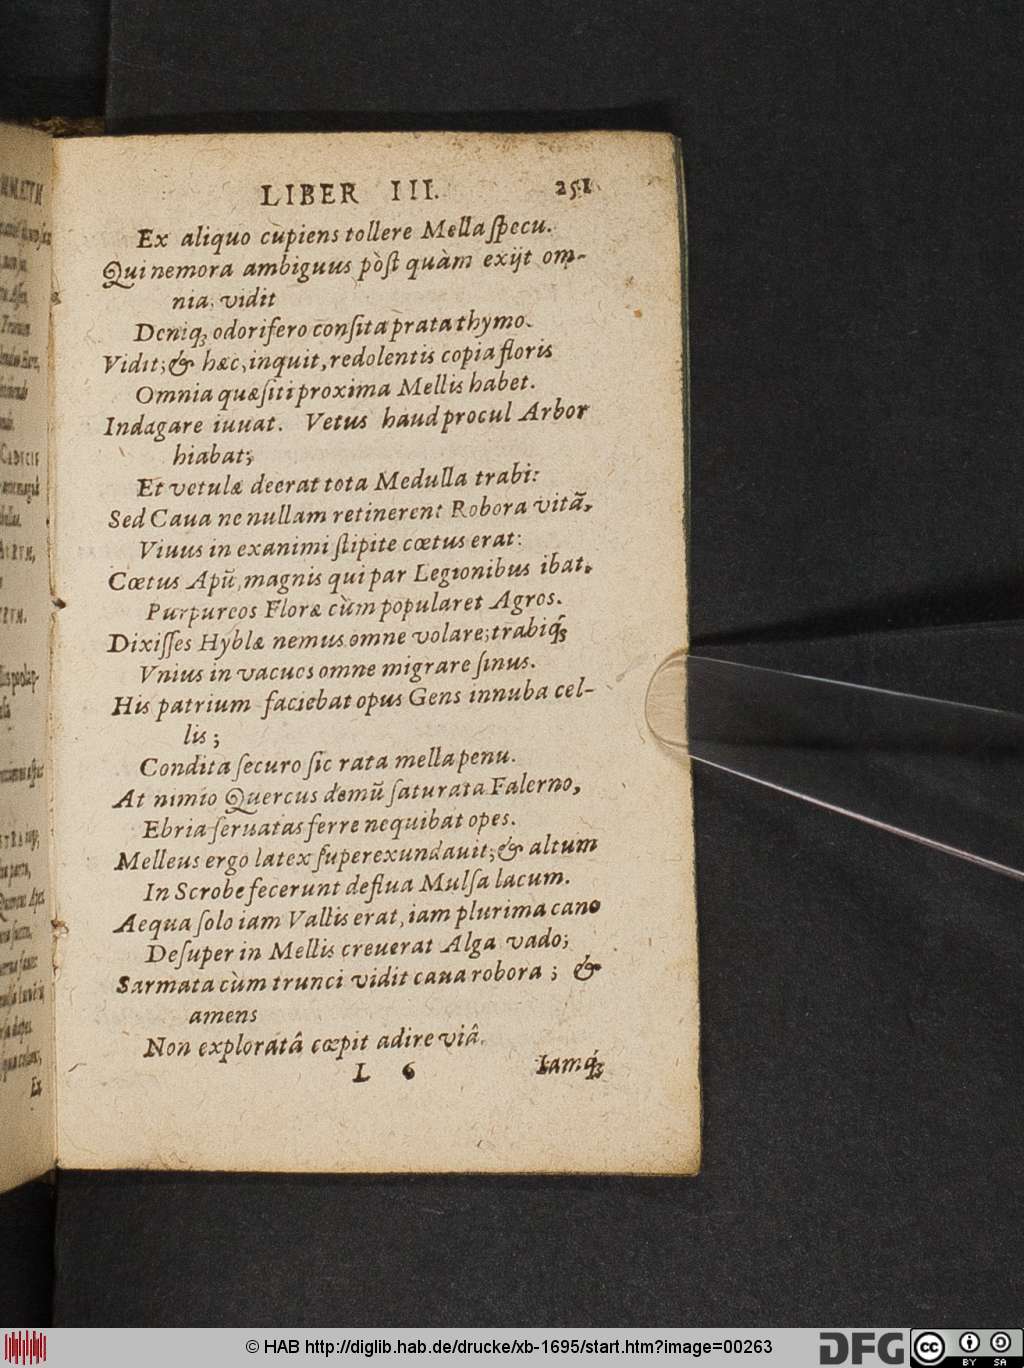 LIBER III. 251
Ex aliquo cupiens tollere Mella ſpecu.
Qui nemora ambiguus pòſt quàm exijt om-
nia, vidit
Deniq; odorifero conſita prata thymo.
Vidit; & hæc, inquit, redolentis copia floris
Omnia quæſiti proxima Mellis habet.
Indagare iuuat. Vetus haud procul Arbor
hiabat;
Et vetulæ deerat tota Medulla trabi:
Sed Caua ne nullam retinerent Robora vitã,
Viuus in exanimi ſtipite cœtus erat:
Cœtus Apũ, magnis qui par Legionibus ibat,
Purpureos Floræ cùm popularet Agros.
Dixiſſes Hyblæ nemus omne volare; trabiq́;
Vnius in vacuos omne migrare ſinus.
His patrium faciebat opus Gens innuba cel-
lis;
Condita ſecuro ſic rata mella penu.
At nimio Quercus demũ ſaturata Falerno,
Ebria ſeruatas ferre nequibat opes.
Melleus ergo latex ſuperexundauit; & altum
In Scrobe fecerunt deflua Mulſa lacum.
Aequa ſolo iam Vallis erat, iam plurima cano
Deſuper in Mellis creuerat Alga vado;
Sarmata cùm trunci vidit caua robora; &
amens
Non exploratâ cœpit adire viâ.
L 6 Iamq́;
Ex
© HAB http://diglib.hab.de/drucke/xb-1695/start.htm?image=00263
DFG
cc
BY SA